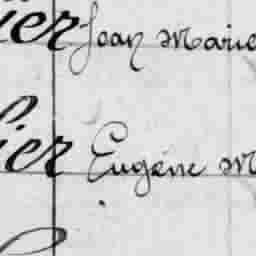 ier Jean Marie
ier Eugène M